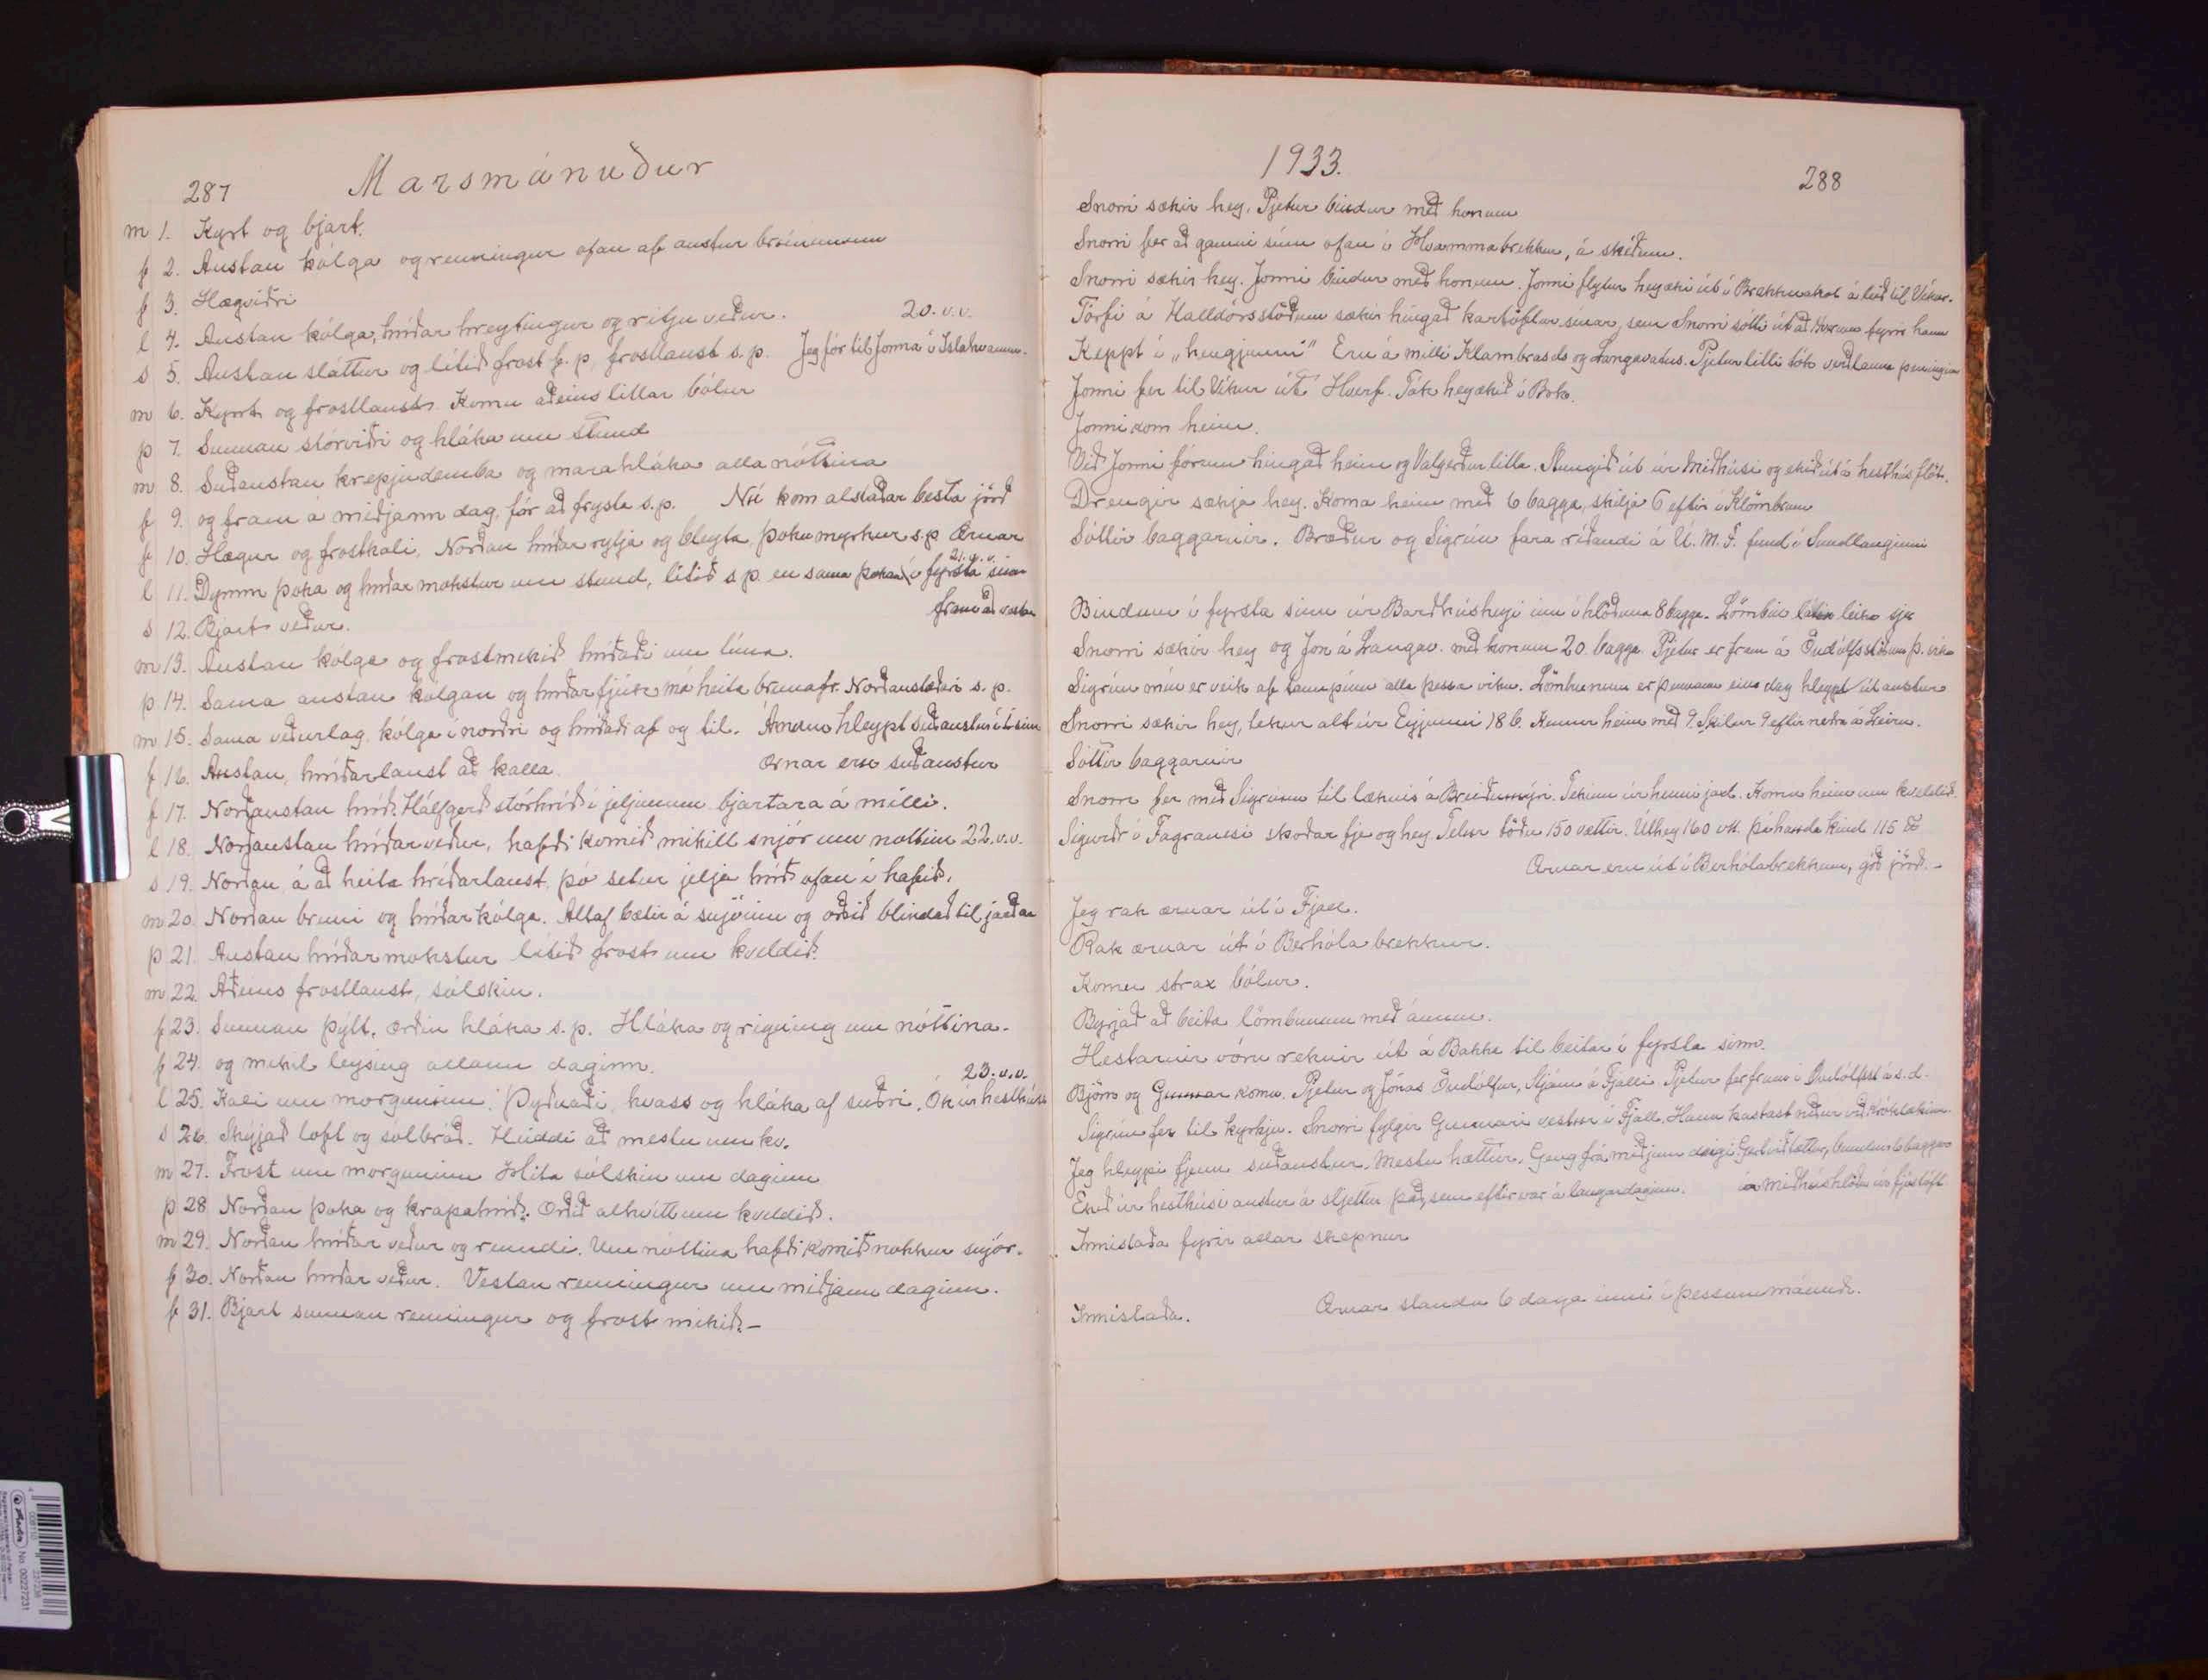 287 Marsmánuður
m 1. Kyrt og bjart.
þ 2. Austan kólga og renningur ofan af austur brúninum
f 3. Hægviðri
l 4. Austan kólga, hríðar hreytingur og ritju veður. 20. v.v.
s 5. Austan sláttur og lítið frost f. p, frostlaust s. p. Jeg fór til Jonna í Islahvamm.
m 6. Kyrt og frostlaust. Komu aðeins litlar bólur
þ 7. Sunnan stórviðri og hláka um stund
m 8. Suðaustan krepjudemba og marahláka alla nóttina
f 9. og fram á miðjann dag, fór að frysta s.p. Nú kom alstaðar besta jörð
f 10. Hægur og frostkali, Norðan hríðar rylja og bleyta, þoku myrkur s.p Ærnar
l 11. Dymm þoka og hríðar mokstur um stund, lítið s p. en sama þokan í fyrsta sinn
21. v. v.
fram að vestan
s 12. Bjart veður.
m 13. Austan kólga og frostmikið hríðaði um tíma.
þ 14. Sama austan kólgan og hríðar fjúk má heita brunafr. Norðanslæðir s. p.
m 15. Sama veðurlag, kólga í norðri og hríðaði af og til. Ánum hleypt suðaustur í 1 sinn
f 16. Austan, hríðarlaust að kalla. ærnar eru suðaustur
f 17. Norðaustan hríð. Hálfgerð stórhríð í jeljunum bjartara á milli.
l 18. Norðaustan hríðarveður, hafði komið mikill snjór um nóttina 22. v.v.
s 19. Norðan, á að heita hríðarlaust, þó setur jelja hríð ofan í hafið.
m 20. Norðan bruni og hríðar kólga. Altaf bætir á snjóinn og orðið blindað til jarðar
þ 21. Austan hríðarmokstur lítið frost um kveldið.
m 22. Aðeins frostlaust, sólskin.
f 23. Sunnan þýtt. orðin hláka s. p. Hláka og rigning um nóttina.
f 24. og mikil leysing allann daginn.
23. v.v.
l 25. Kali um morguninn. Þyðnaði, hvass og hláka af suðri. Ók úr hesthúsi
s 26. Skýjað loft og sólbráð. Hlíddi að mestu um kv.
m 27. Frost um morguninn Hita sólskin um daginn
þ 28 Norðan þoka og krapahríð. Orðið alhvítt um kveldið.
m 29. Norðan hríðar veður og renndi. Um nóttina hafði komið nokkur snjór.
f 30. Norðan hríðar veður. Vestan renningur um miðjann daginn.
f 31. Bjart sunnan renningur og frost mikið.-
1933. 288
Snorri sækir hey. Pjetur bindur með honum
Snorri fer að gamni sínu ofan í Hvammabrekkur, á skíðum.
Snorri sækir hey. Jonni bindur með honum. Jonni flytur heyæki út í Brekknakot á leið til Víkur.
Torfi á Halldórsstöðum sækir hingað kartöflur sínar, sem Snorri sótti út að fyrir hann
Keppt í "hengjunni" Eru á milli Klambrasels og Langavatns. Pjetur litli tók verðlauna peningin
Jonni fer til Víkur út Hverf. Tók heyækið í Brk.
Jonni kom heim.
Við Jonni fórum hingað heim og Valgerður litla. Stungið út úr Miðhúsi og ekið út á hesthús flöt.
Drengir sækja hey. Koma heim með 6 bagga, skilja 6 eftir í Klömbrum
Sóttir baggarnir. Bræður og Sigrún fara ríðandi á U. M. F. fund í Sundlauginni
Bindum í fyrsta sinn úr Barðhúsheyi inn í hlöðuna 8 bagga. Lömbin látin leika sjer
Snorri sækir hey og Jón á Langav. með honum 20. bagga. Pjetur er fram á Öndólfsstöðum þ. viku
Sigrún mín er veik af tannpínu alla þessa viku. Lömbunum er þennan eina dag hleypt út austur
Snorri sækir hey, tekur alt úr Eyjunni 18 b. Kemur heim með 9. Skilur 9 eftir neðra á Leiru.
Sóttir baggarnir
Snorri fer með Sigrúnu til læknis á Breiðumýri. Tekinn úr henni jaxl. Komu heim um kveldið.
Sigurðr í Fagranesi skoðar fje og hey. Telur töðu 150 vættir. Úthey 160 vtt. þá handa kind 115 ℔
Ærnar eru út í Berhólabrekkum, góð jörð.-
Jeg rak ærnar út í Fjall.
Rak ærnar út í Berhóla brekkur.
Komu strax bólur.
Byrjað að beita lömbunum með ánum.
Hestarnir vóru reknir út á Bakka til beitar í fyrsta sinn.
Björn og Gunnar komu. Pjetur og Jónas Öndólfur, Stjáni á Fjalli. Pjetur fer fram í Öndólfsst á s. d.
Sigrún fer til kyrkju. Snorri fylgir Gunnari vestur í Fjall. Hann kastast niður við Króklækinn.
Jeg hleypi fjenu suðaustur. Mestu hættur. Geng frá miðjum degi bundnir 6 baggar
Ekið úr hesthúsi austur á sljettur það, sem eftir var á laugardaginn. á Miðhúshlöðu
Innistaða fyrir allar skepnur
Innistaða. Ærnar standa 6 daga inni í þessum mánuði.
No. 00227231